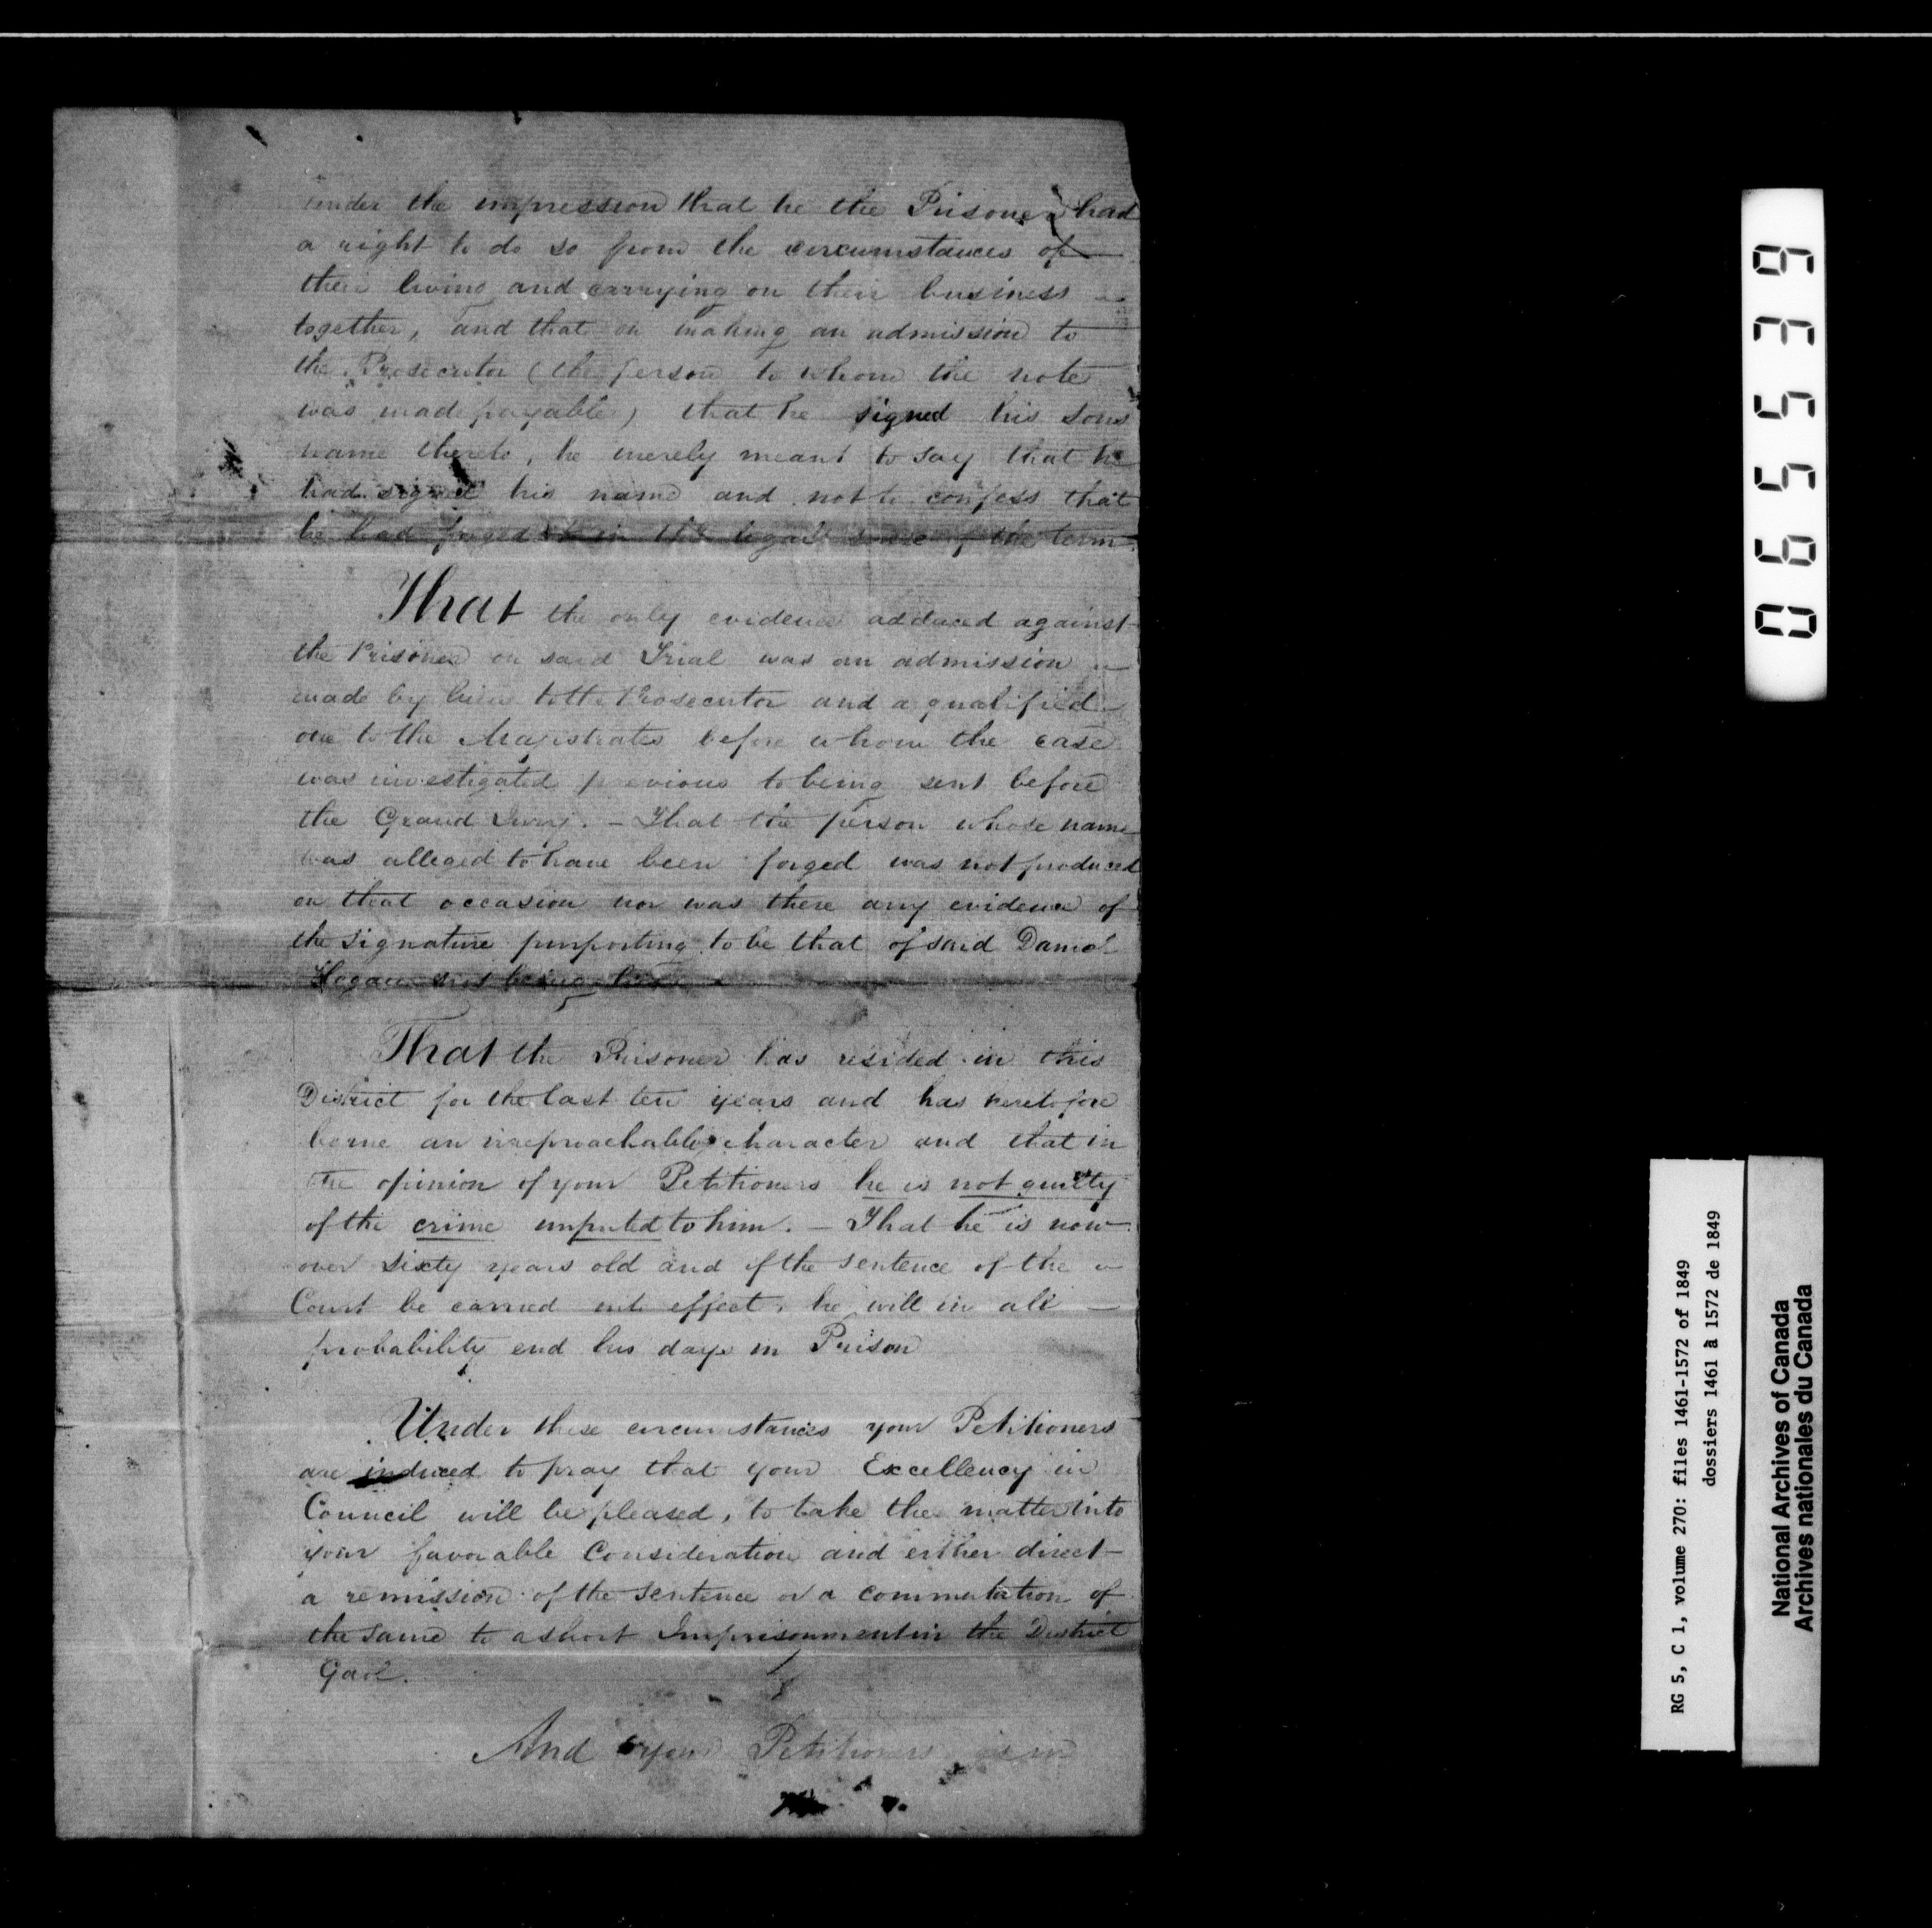 under the impression that he the Prisoner had
a right to do so from the circumstances of
their living and carrying on their business
together, and that on making an admission to
the Prosecutor (the person to whom the note
was made payable) that he signed his sons
name thereto, he merely meant to say that he
had signed his name and not to confess that
he had forged it in the legal sense of the term.
That the only evidence adduced against
the Prisoner on said Trial was an admission
made by him to the Prosecutor and a qualified
one to the Magistrates before whom the case
was investigated previous to being sent before
the Grand Jury. – That the person whose name
was alleged to have been forged was not produced
on that occasion nor was there any evidence of
the signature purporting to be that of said Daniel
Hogan not being his
That the Prisoner has resided in this
District for the last ten years and has heretofore
borne an irreproachable character and that in
the opinion of your Petitioners he is not guilty
of the crime imputed to him. – That he is now
over sixty years old and if the sentence of the
Court be carried into effect, he will in all –
probability end his days in Prison
Under these circumstances your Petitioners
are induced to pray that your Excellency in
Council will be pleased, to take the matter into
your favorable Consideration and either direct
a remission of the sentence or a commutation of
the same to a short Imprisonment in the District
Gaol.
And your Petitioners as in
065539
RG 5, C 1, volume 270: files 1461-1572 of 1849
dossiers 1461 à 1572 de 1849
National Archives of Canada
Archives nationales du Canada